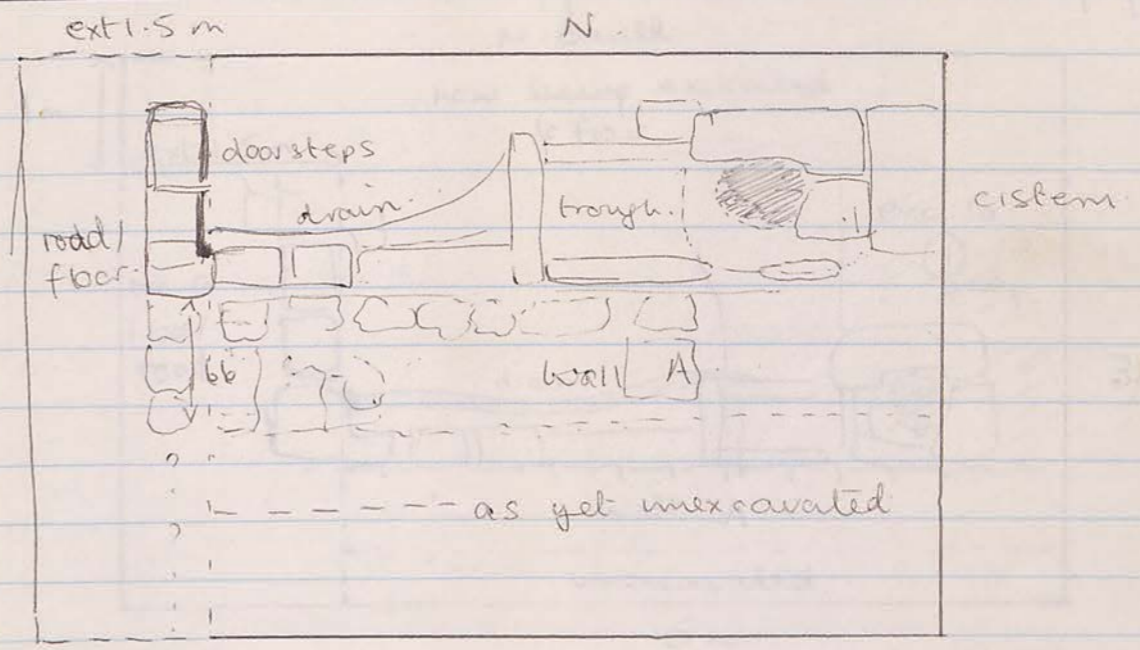 ext 1.5 m
N.
doorsteps
drain.
trough.
cistern
road/
floor.
66
wall A
as yet unexcavated